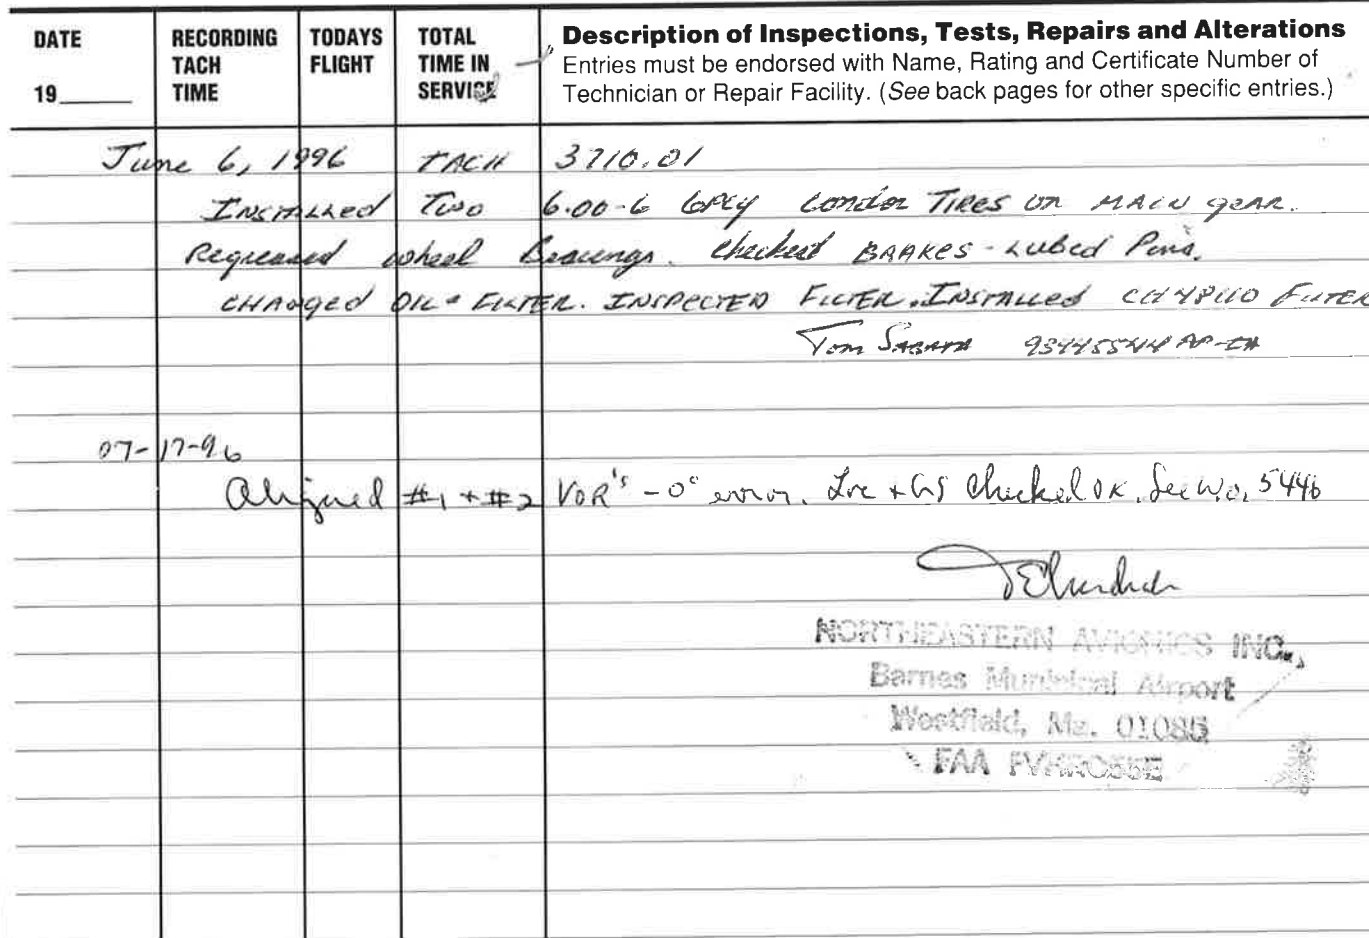 DATE RECORDING TODAYS TOTAL Description of Inspections, Tests, Repairs and Alterations
TACH FLIGHT TIME IN Entries must be endorsed with Name, Rating and Certificate Number of
19____ TIME SERVICE Technician or Repair Facility. (See back pages for other specific entries.)
June 6, 1996 TACH 3710.01
Installed Two 6.00-6 6PLY Condor Tires on MAIN gear.
Regreased wheel Bearings. Checked BRAKES - Lubed Pins.
CHANGED OIL + FILTER. INSPECTED FILTER. INSTALLED CH48110 FILTER
Tom
07-17-96
Aligned #1 + #2 VOR's - 0° error. Loc + GS Checked OK. See W.O. 5446
NORTHEASTERN AVIONICS INC.,
Barnes Municipal Airport
Westfield, Ma. 01085
FAA